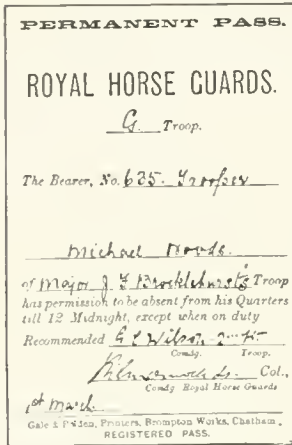 PERMANENT PASS.
ROYAL HORSE GUARDS.
G. Troop.
The Bearer, No. 635. Trooper
Michael Woods.
of Major J F Brocklehurst's Troop
has permission to be absent from his Quarters
till 12 Midnight, except when on duty
Recommended Wilson
Comdg. Troop.
Col.,
Comdg Royal Horse Guards
1st March
Gale & Polden, Printers, Brompton Works, Chatham,
REGISTERED PASS.